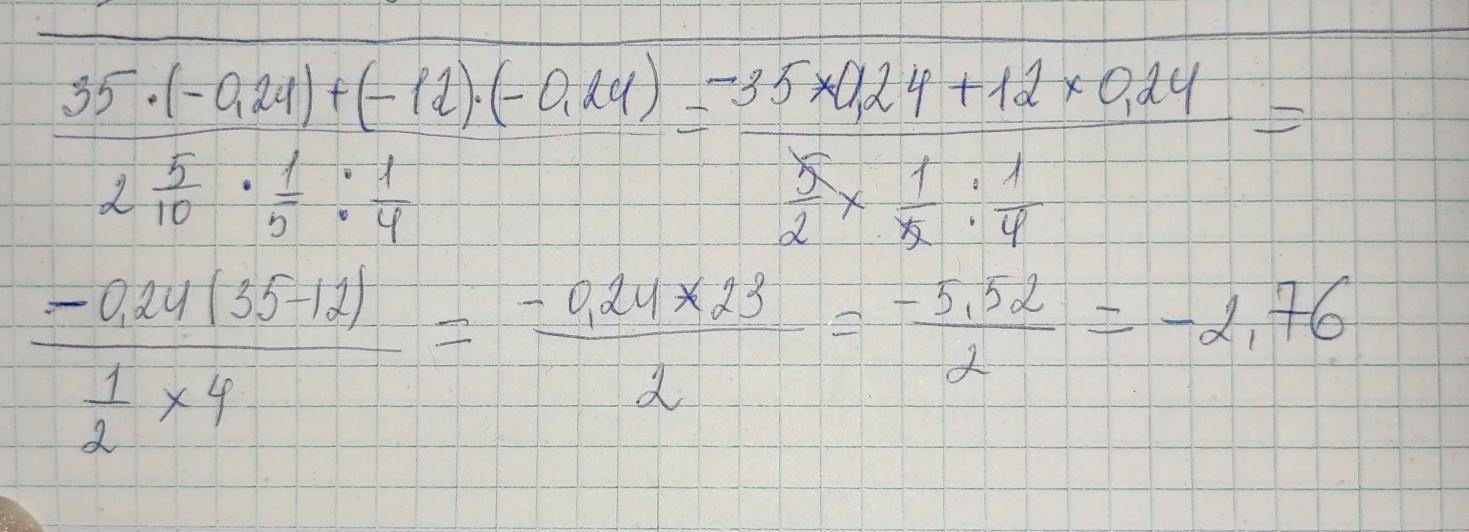 35·(-0,24)+(-12)·(-0,24) / 2 5/10 · 1/5 : 1/4 = -35×0,24+12×0,24 / 5/2 × 1/5 : 1/4 =
-0,24(35-12) / 1/2 ×4 = -0,24×23 / 2 = -5,52 / 2 = -2,76